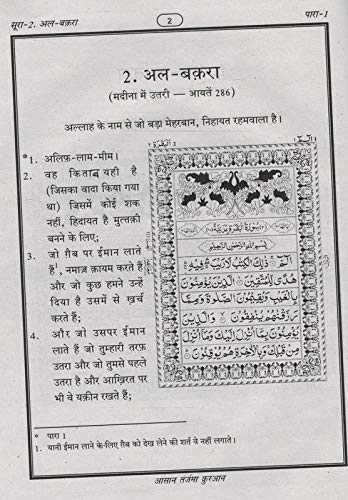 सूरा-2. अल-बक़रा
2
पारा-1
2. अल-बक़रा
(मदीना में उतरी — आयतें 286)
अल्लाह के नाम से जो बड़ा मेहरबान, निहायत रहमवाला है।
*1. अलिफ़-लाम-मीम।
2. वह किताब यही है
(जिसका वादा किया गया
था) जिसमें कोई शक
नहीं, हिदायत है मुत्तक़ी
बनने के लिए;
3. जो ग़ैब पर ईमान लाते
हैं¹, नमाज़ क़ायम करते हैं
और जो कुछ हमने उन्हें
दिया है उसमें से ख़र्च
करते हैं;
4. और जो उसपर ईमान
लाते हैं जो तुम्हारी तरफ़
उतरा और जो तुमसे पहले
उतरा है और आख़िरत पर
भी वे यक़ीन रखते हैं;
بسم الله الرحمن الرحيم
الم ذلك الكتب لا ريب فيه
هدى للمتقين الذين يؤمنون
بالغيب ويقيمون الصلوة ومما
رزقنهم ينفقون والذين
يؤمنون بما أنزل إليك وما أنزل
من قبلك وبالآخرة هم يوقنون
* पारा 1
1. यानी ईमान लाने के लिए ग़ैब को देख लेने की शर्त ये नहीं लगाते।
आसान तर्जमा क़ुरआन